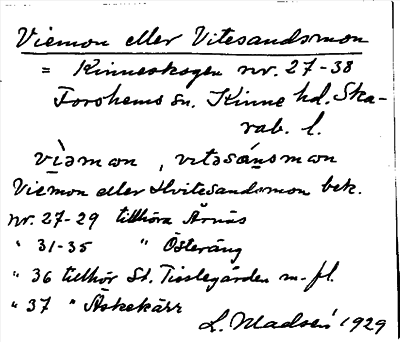 Viemon eller Vitesandsmon
= Kinneskogen nr. 27-38
Forshems sn. Kinne hd. Ska-
rab. l.
vìəmωn, vıtəsáņsmωn
Viemon eller Hvitesandsmon bek.
nr. 27-29 tillhöra Årnäs
" 31-35 " Österäng
" 36 tillhör St. Tisslegården m. fl.
" 37 " Äskekärr
L. Madsén 1929